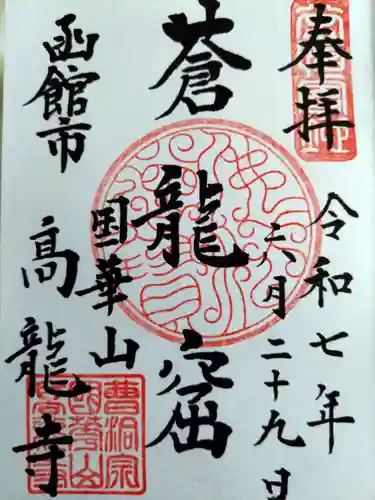 奉拝
令和七年
六月二十九日
蒼龍窟
国華山
函館市
高龍寺
曹洞宗
国華山
高龍寺